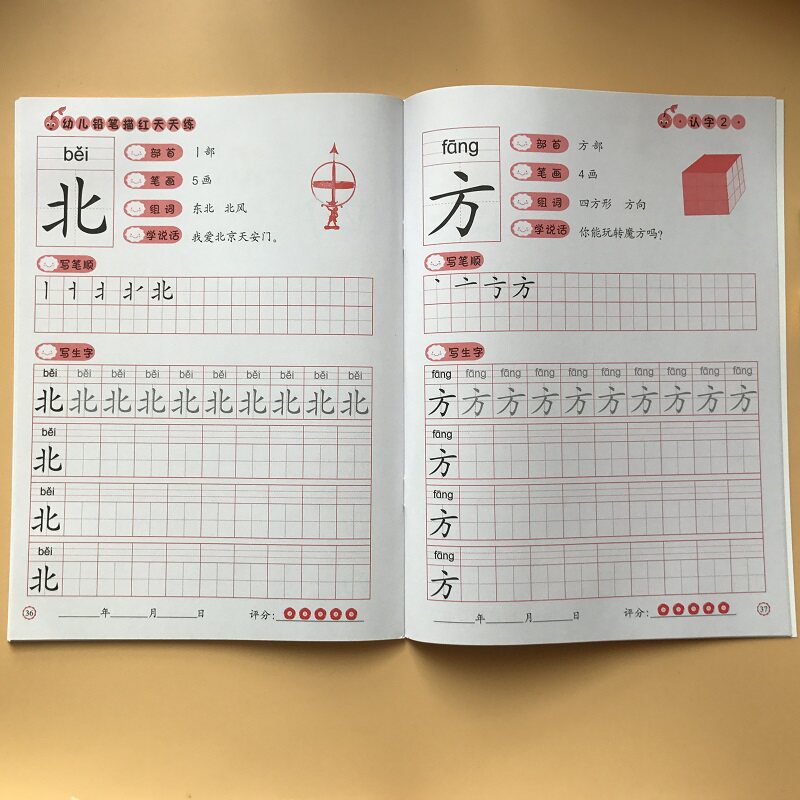 幼儿铅笔描红天天练
běi
北
部首 丨部
笔画 5画
组词 东北 北风
学说话 我爱北京天安门。
写笔顺
丨 丬 北
写生字
běi běi běi běi běi běi běi běi běi běi
北 北 北 北 北 北 北 北 北 北
běi
北
běi
北
běi
北
36 年 月 日 评分:
·认字2·
fāng
方
部首 方部
笔画 4画
组词 四方形 方向
学说话 你能玩转魔方吗?
写笔顺
丶 亠 方 方
写生字
fāng fāng fāng fāng fāng fāng fāng fāng fāng fāng
方 方 方 方 方 方 方 方 方 方
fāng
方
fāng
方
fāng
方
年 月 日 评分: 37